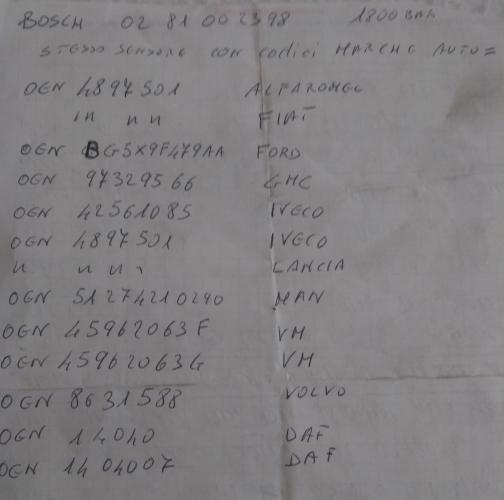 BOSCH 02 81 002398 1800 BAR
STESSO SENSORE CON CODICI MARCHE AUTO =
OEN 4897501 ALFAROMEO
" " " " FIAT
OEN BG5X9F479AA FORD
OEN 97329566 GMC
OEN 42561085 IVECO
OEN 4897501 IVECO
" " " " LANCIA
OEN 51274210240 MAN
OEN 45962063F VM
OEN 45962063G VM
OEN 8631588 VOLVO
OEN 14040 DAF
OEN 1404007 DAF